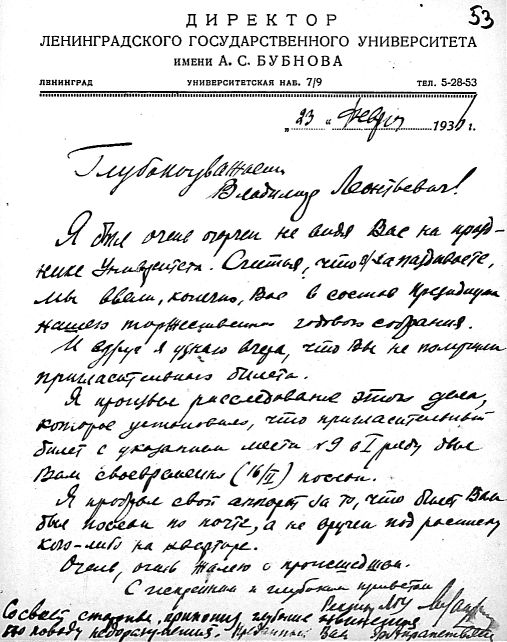 53
ДИРЕКТОР
ЛЕНИНГРАДСКОГО ГОСУДАРСТВЕННОГО УНИВЕРСИТЕТА
ИМЕНИ А. С. БУБНОВА
ЛЕНИНГРАД УНИВЕРСИТЕТСКАЯ НАБ. 7/9 ТЕЛ. 5-28-53
„23“ февр 193 г.
Глубокоуважаемый
Владимир Леонтьевич!
Я был очень огорчен не видя Вас на празд-
нике Университета. Считая, что запаздываете,
мы ввели, конечно, Вас в состав президиума
нашего торжественного годового собрания.
И вдруг я узнаю вчера, что Вы не получили
пригласительного билета.
Я произвел расследование этого дела,
которое установило, что пригласительный
билет с указанием места №9 в I ряду был
Вам своевременно (16/II) послан.
Я пробрал свой аппарат за то, что билет Вам
был послан по почте, а не вручен под расписку
кого-либо на квартире.
Очень, очень жалею о происшедшем.
С искренним и глубоким приветом
Ректор ЛГУ
Со своей стороны, приношу глубокие извинения
по поводу недоразумения. Преданный Вам